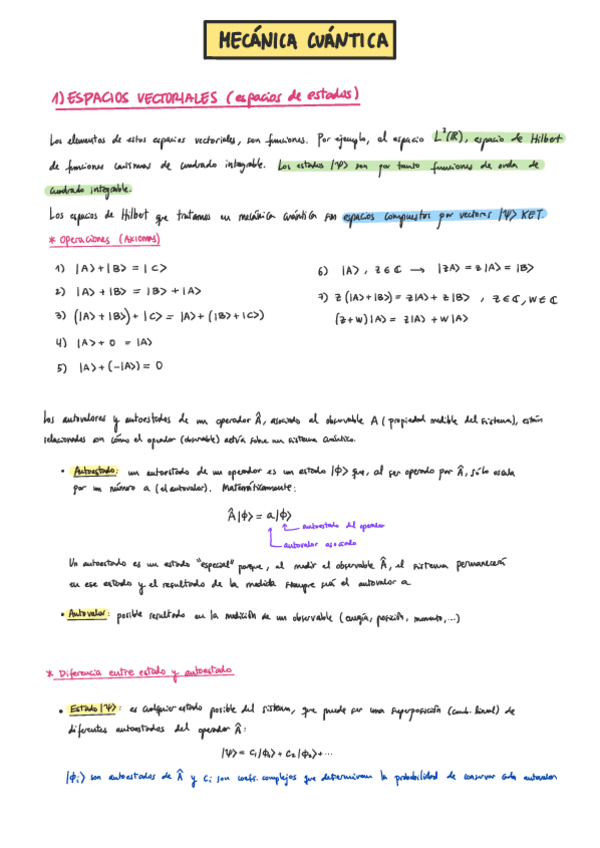 MECÁNICA CUÁNTICA
1) ESPACIOS VECTORIALES (espacios de estados)
Los elementos de estos espacios vectoriales, son funciones. Por ejemplo, el espacio L²(ℝ), espacio de Hilbert
de funciones de cuadrado integrable. Los estados |Ψ> son por tanto funciones de onda de
cuadrado integrable.
Los espacios de Hilbert que tratamos en mecánica cuántica son espacios compuestos por vectores |Ψ> KET.
* Operaciones (AXIOMAS)
1) |A> + |B> = |C>
2) |A> + |B> = |B> + |A>
3) (|A> + |B>) + |C> = |A> + (|B> + |C>)
4) |A> + 0 = |A>
5) |A> + (-|A>) = 0
6) |A>, z ∈ ℂ → |zA> = z|A> = |B>
7) z(|A> + |B>) = z|A> + z|B> , z ∈ ℂ, w ∈ ℂ
(z+w)|A> = z|A> + w|A>
Los autovalores y autoestados de un operador Â, asociado al observable A (propiedad medible del sistema), están
relacionados con cómo el operador (observable) actúa sobre un sistema cuántico.
• Autoestado: un autoestado de un operador es un estado |ϕ> que, al ser operado por Â, sólo escala
por un número a (el autovalor). Matemáticamente:
Â|ϕ> = a|ϕ>
autoestado del operador
autovalor asociado
Un autoestado es un estado "especial" porque, al medir el observable Â, el sistema permanecerá
en ese estado y el resultado de la medida siempre será el autovalor a
• Autovalor: posible resultado en la medición de un observable (energía, posición, momento,...)
* Diferencia entre estado y autoestado
• Estado |Ψ>: es cualquier estado posible del sistema, que puede ser una superposición (comb. lineal) de
diferentes autoestados del operador Â:
|Ψ> = c₁|ϕ₁> + c₂|ϕ₂> + ...
|ϕi> son autoestados de Â y ci son coefs. complejos que determinan la probabilidad de cada autovalor